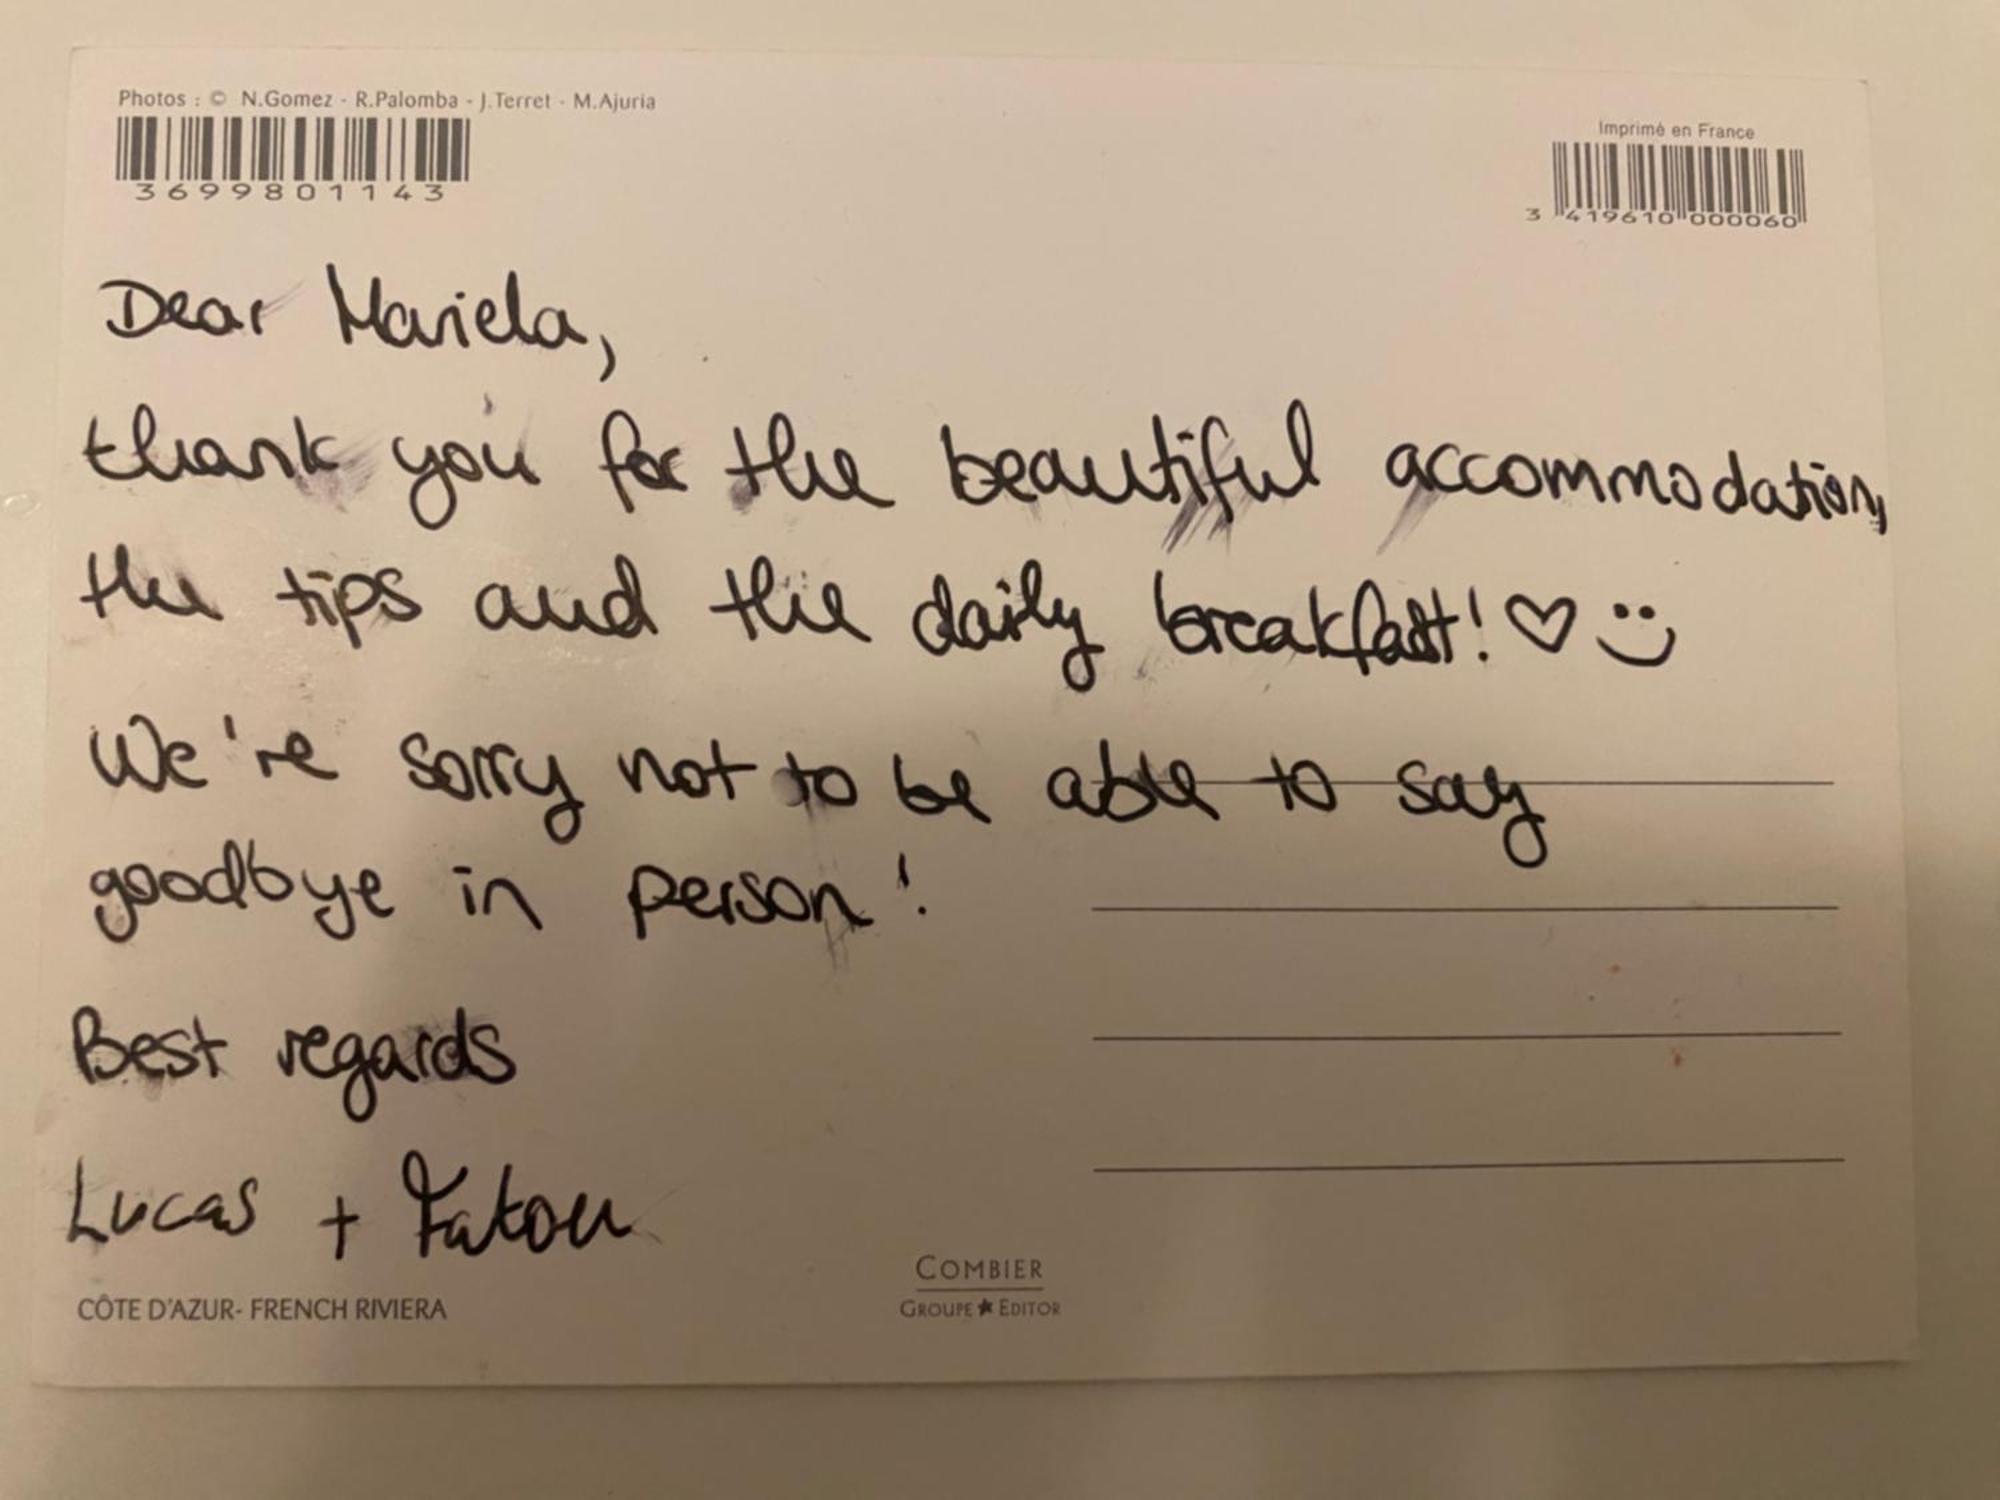 Photos : © N.Gomez - R.Palomba - J.Terret - M.Ajuria
3699801143
Imprimé en France
3 419610 000060
Dear Mariela,
thank you for the beautiful accommodation,
the tips and the daily breakfast! ♡ ü
We're sorry not to be able to say
goodbye in person!
Best regards
Lucas + Fatou
CÔTE D'AZUR- FRENCH RIVIERA
COMBIER
GROUPE ★ EDITOR